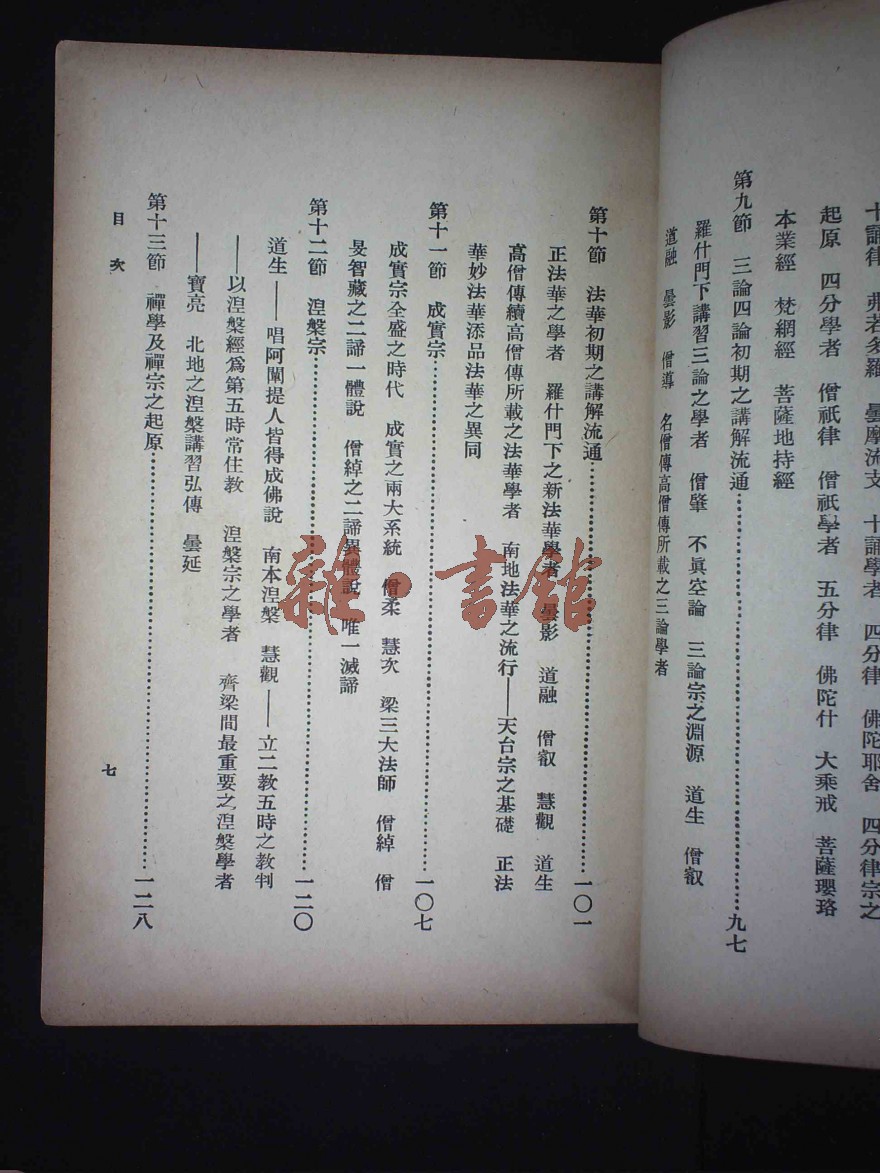 十誦律　弗若多羅　曇摩流支　十誦學者　四分律　佛陀耶舍　四分律宗之
起原　四分學者　僧祇律　僧祇學者　五分律　佛陀什　大乘戒　菩薩瓔珞
本業經　梵網經　菩薩地持經
第九節　三論四論初期之講解流通……九七
羅什門下講習三論之學者　僧肇　不眞空論　三論宗之淵源　道生　僧叡
道融　曇影　僧導　名僧傳高僧傳所載之三論學者
第十節　法華初期之講解流通……一〇一
正法華之學者　羅什門下之新法華學者　曇影　道融　僧叡　慧觀　道生
高僧傳續高僧傳所載之法華學者　南地法華之流行——天台宗之基礎　正法
華妙法華添品法華之異同
第十一節　成實宗……一〇七
成實宗全盛之時代　成實之兩大系統　僧柔　慧次　梁三大法師　僧綽　僧
旻智藏之二諦一體說　僧綽之二諦異體說　唯一滅諦
第十二節　涅槃宗……一二〇
道生——唱阿闡提人皆得成佛說　南本涅槃　慧觀——立二教五時之教判
——以涅槃經爲第五時常住教　涅槃宗之學者　齊梁間最重要之涅槃學者
——寶亮　北地之涅槃講習弘傳　曇延
第十三節　禪學及禪宗之起原……一二八
目次
七
雜·書館